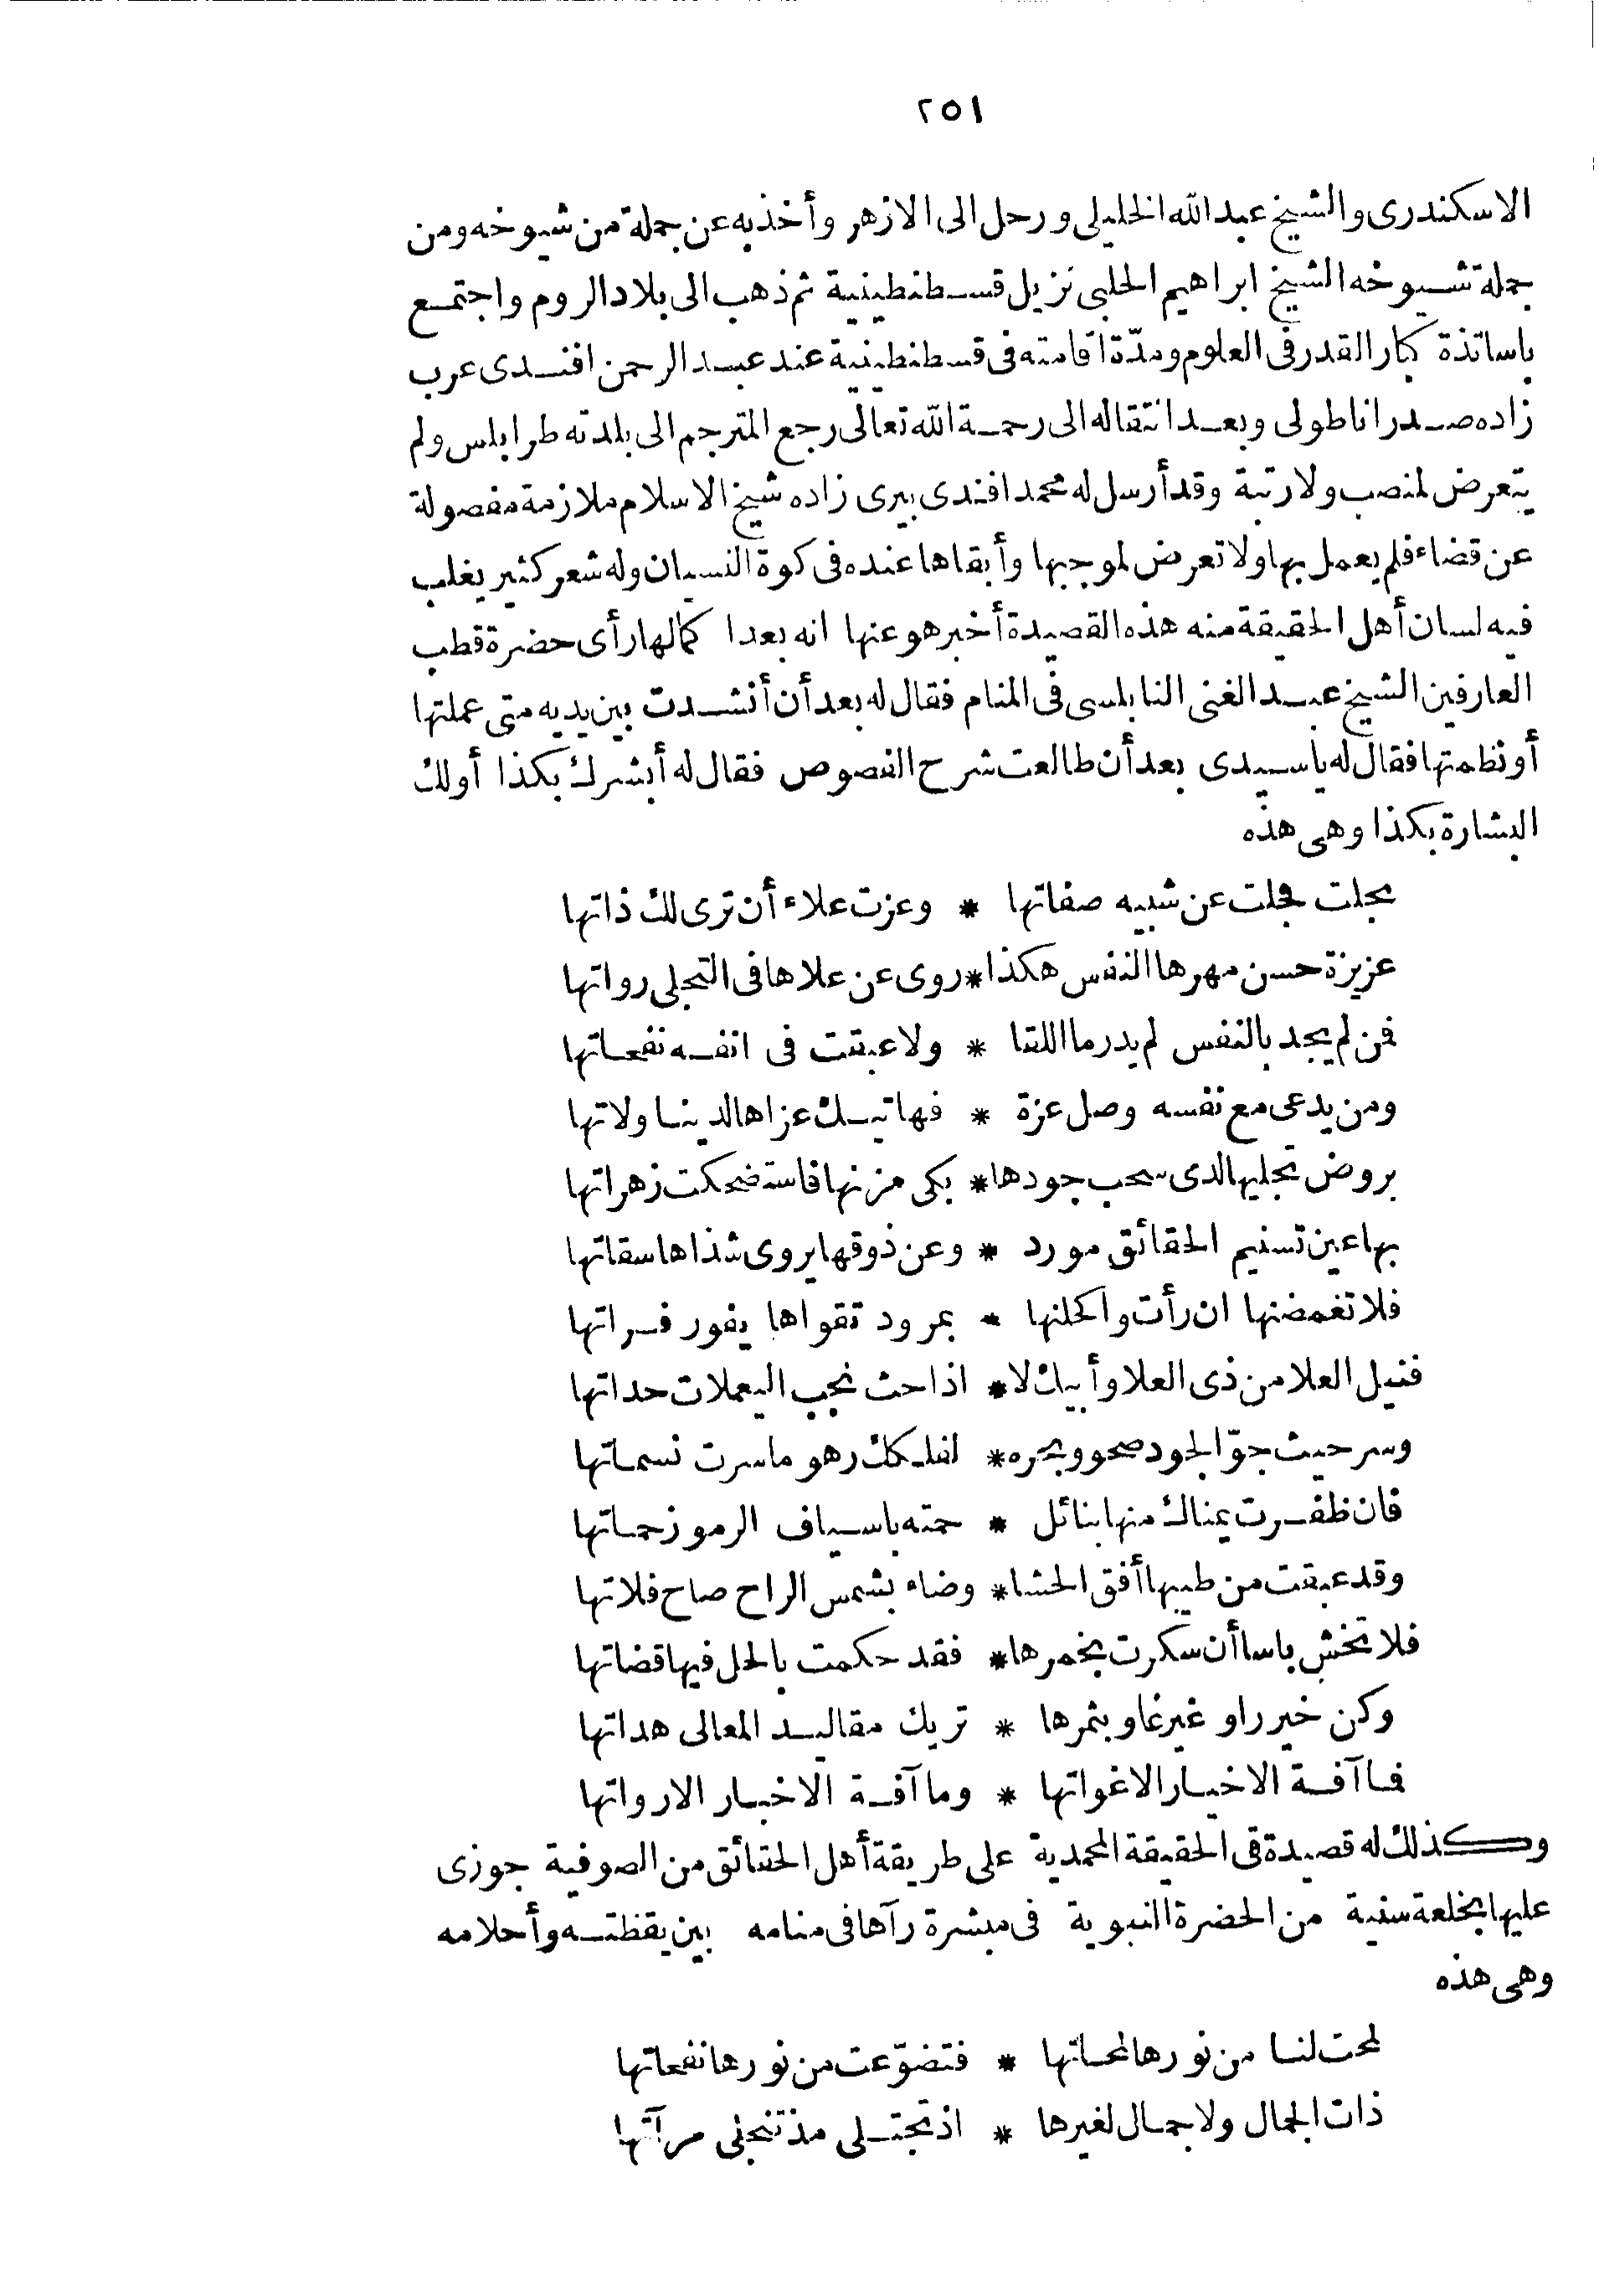 ٢٥١
الاسكندرى والشيخ عبد الله الخليلى ورحل الى الازهر وأخذ به عن جملة من شيوخه ومن
جملة شيوخه الشيخ ابراهيم الحلبى نزيل قسطنطينية ثم ذهب الى بلاد الروم واجتمع
باساتذة كبار القدر فى العلوم ومدّة اقامته فى قسطنطينية عند عبد الرحمن افندى عرب
زاده صدر اناطولى وبعد انتقاله الى رحمة الله تعالى رجع المترجم الى بلدته طرابلس ولم
يتعرض لمنصب ولا رتبة وقد أرسل له محمد افندى بيرى زاده شيخ الاسلام ملازمة مفصولة
عن قضاء فلم يعمل بها ولا تعرض لموجبها وأبقاها عنده فى كوة النسيان وله شعر كثير يغلب
فيه لسان أهل الحقيقة منه هذه القصيدة أخبر هو عنها انه بعد اكمالها رأى حضرة قطب
العارفين الشيخ عبد الغنى النابلسى فى المنام فقال له بعد أن أنشدت بين يديه متى عملتها
أو نظمتها فقال له يا سيدى بعد أن طالعت شرح الفصوص فقال له أبشرك بكذا أو لك
البشارة بكذا وهى هذه
تجلت فجلت عن شبيه صفاتها * وعزت علاء أن ترى لك ذاتها
عزيزة حسن مهرها النفس هكذا * روى عن علاها فى التجلى رواتها
فمن لم يجد بالنفس لم يدر ما اللقا * ولا عبقت فى انفه نفحاتها
ومن يدعى مع نفسه وصل عزة * فهاتيك عزاها لدينا ولاتها
بروض تجليها الذى سحب جودها * بكى مزنها فاستضحكت زهراتها
بها عين تسنيم الحقائق مورد * وعن ذوقها يروى شذاها سقاتها
فلا تغمضنها ان رأت واكحلنها * بمرود تقواها يفور فراتها
فنيل العلا من ذى العلا وأبيك لا * اذا حث نجب اليعملات حداتها
وسر حيث جوّ الجود صحو وبحره * لفلكك رهو ما سرت نسماتها
فان ظفرت يمناك منها بنائل * حمته باسياف الرموز حماتها
وقد عبقت من طيبها أفق الحشا * وضاء بشمس الراح صاح فلاتها
فلا تخش باسا أن سكرت بخمرها * فقد حكمت بالحل فيها قضاتها
وكن خير راو غير غاو بثمرها * تريك مقاليد المعالى هداتها
فما آفة الاخيار الا غواتها * وما آفة الاخبار الا رواتها
وكذلك له قصيدة فى الحقيقة المحمدية على طريقة أهل الحقائق من الصوفية جوزى
عليها بخلعة سنية من الحضرة النبوية فى مبشرة رآها فى منامه بين يقظته وأحلامه
وهى هذه
لمحت لنا من نورها لمحاتها * فتضوّعت من نورها نفحاتها
ذات الجمال ولا جمال لغيرها * اذ تجتلى مذ تنجلى مرآتها